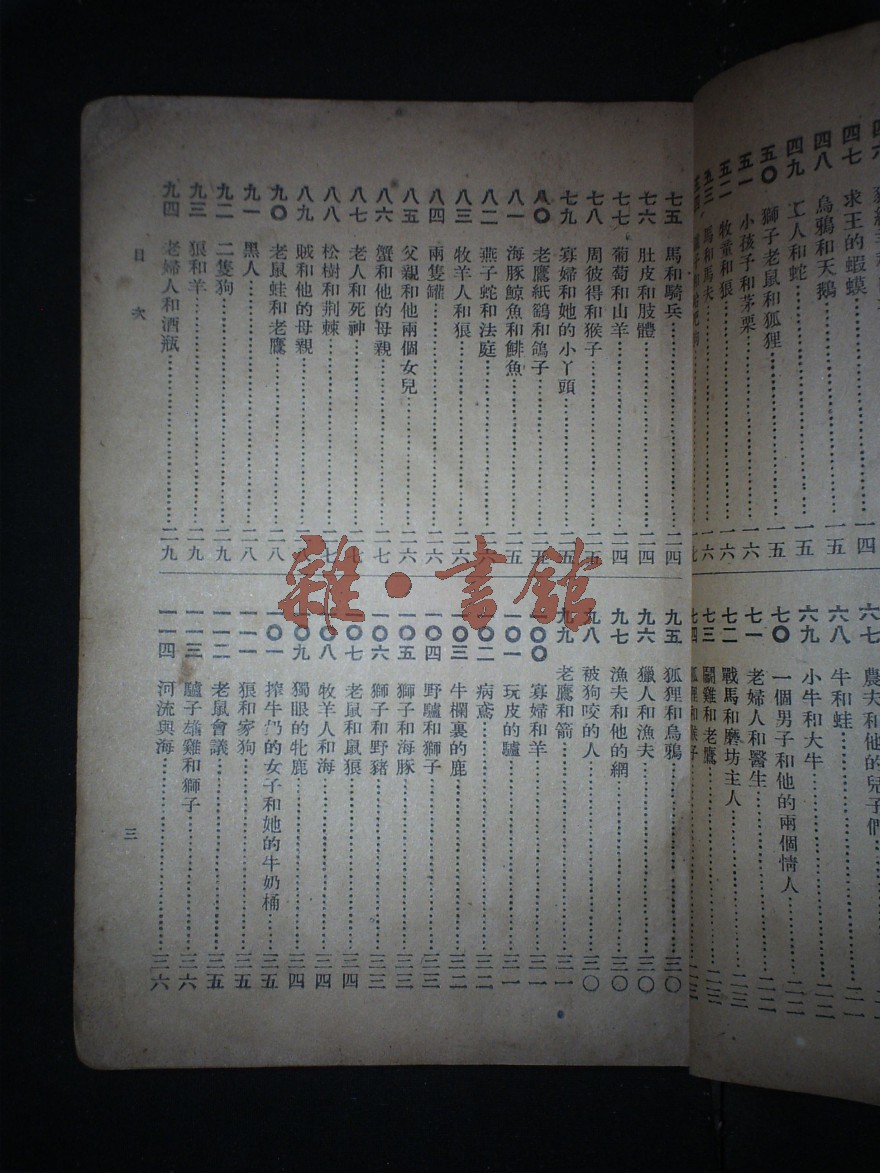 四七 求王的蝦蟆 一四
四八 烏鴉和天鵝 一五
四九 工人和蛇 一五
五〇 獅子老鼠和狐狸 一五
五一 小孩子和茅栗 一六
五二 牧童和狼 一六
五三 馬和馬夫 一六
六七 農夫和他的兒子們
六八 牛和蛙 二一
六九 小牛和大牛 二二
七〇 一個男子和他的兩個情人 二二
七一 老婦人和醫生 二二
七二 戰馬和磨坊主人 二三
七三 鬭雞和老鷹 二三
七四 狐狸和猴子 二三
七五 馬和騎兵 二四
七六 肚皮和肢體 二四
七七 葡萄和山羊 二四
七八 周彼得和猴子 二五
七九 寡婦和她的小丫頭 二五
八〇 老鷹紙鷂和鴿子 二五
八一 海豚鯨魚和鯡魚 二五
八二 燕子蛇和法庭 二六
八三 牧羊人和狼 二六
八四 兩隻罐 二六
八五 父親和他兩個女兒 二六
八六 蟹和他的母親 二七
八七 老人和死神 二七
八八 松樹和荆棘 二七
八九 賊和他的母親 二八
九〇 老鼠蛙和老鷹 二八
九一 黑人 二八
九二 二隻狗 二九
九三 狼和羊 二九
九四 老婦人和酒瓶 二九
九五 狐狸和烏鴉 三〇
九六 獵人和漁夫 三〇
九七 漁夫和他的網 三〇
九八 被狗咬的人 三〇
九九 老鷹和箭 三一
一〇〇 寡婦和羊 三一
一〇一 玩皮的驢 三一
一〇二 病鳶 三二
一〇三 牛欄裏的鹿 三二
一〇四 野驢和獅子 三三
一〇五 獅子和海豚 三三
一〇六 獅子和野豬 三三
一〇七 老鼠和鼠狼 三四
一〇八 牧羊人和海 三四
一〇九 獨眼的牝鹿 三四
一〇一 搾牛奶的女子和她的牛奶桶 三五
一一一 狼和家狗 三五
一一二 老鼠會議 三五
一一三 驢子雄雞和獅子 三六
一一四 河流與海 三六
目次
三
雜·書館